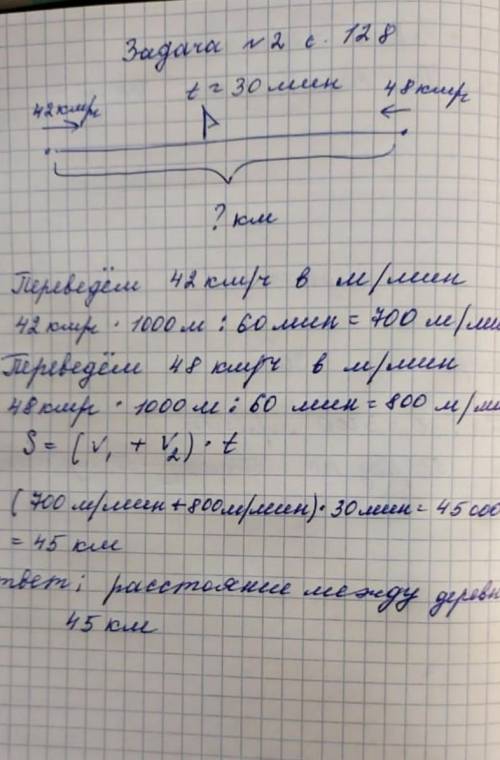 Задача №2 с. 128
t = 30 мин
42 км/ч
48 км/ч
? км
Переведём 42 км/ч в м/мин
42 км/ч · 1000 м : 60 мин = 700 м/мин
Переведём 48 км/ч в м/мин
48 км/ч · 1000 м : 60 мин = 800 м/ми
S = (V₁ + V₂) · t
(700 м/мин + 800 м/мин) · 30 мин = 45 000
= 45 км
твет: расстояние между деревн
45 км